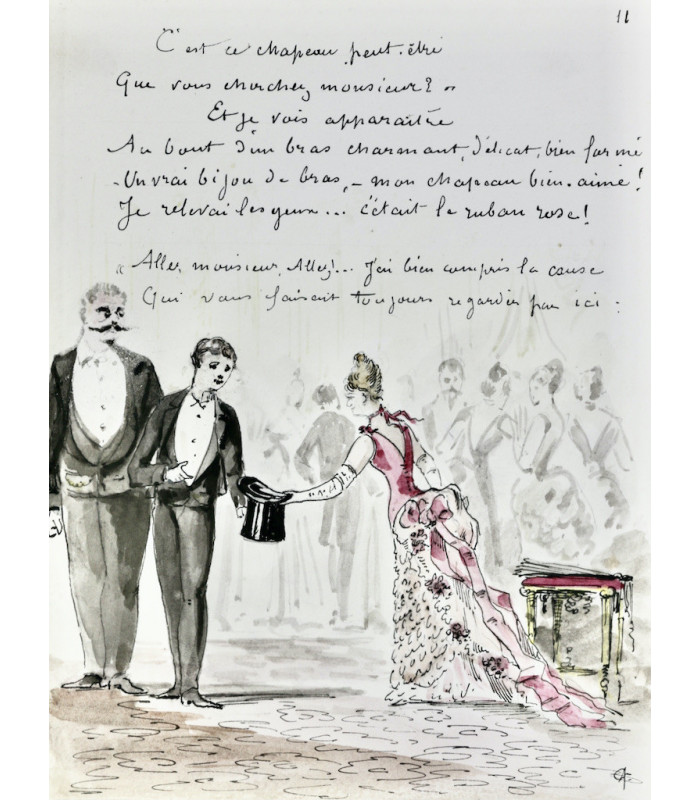 11
C'est ce chapeau peut-être
Que vous cherchez monsieur? »
Et je vois apparaître
Au bout d'un bras charmant, délicat, bien formé
- Un vrai bijou de bras, - mon chapeau bien-aimé!
Je relevai les yeux... c'était le ruban rose!
« Allez, monsieur, Allez!... J'ai bien compris la cause
Qui vous faisait toujours regarder par ici.